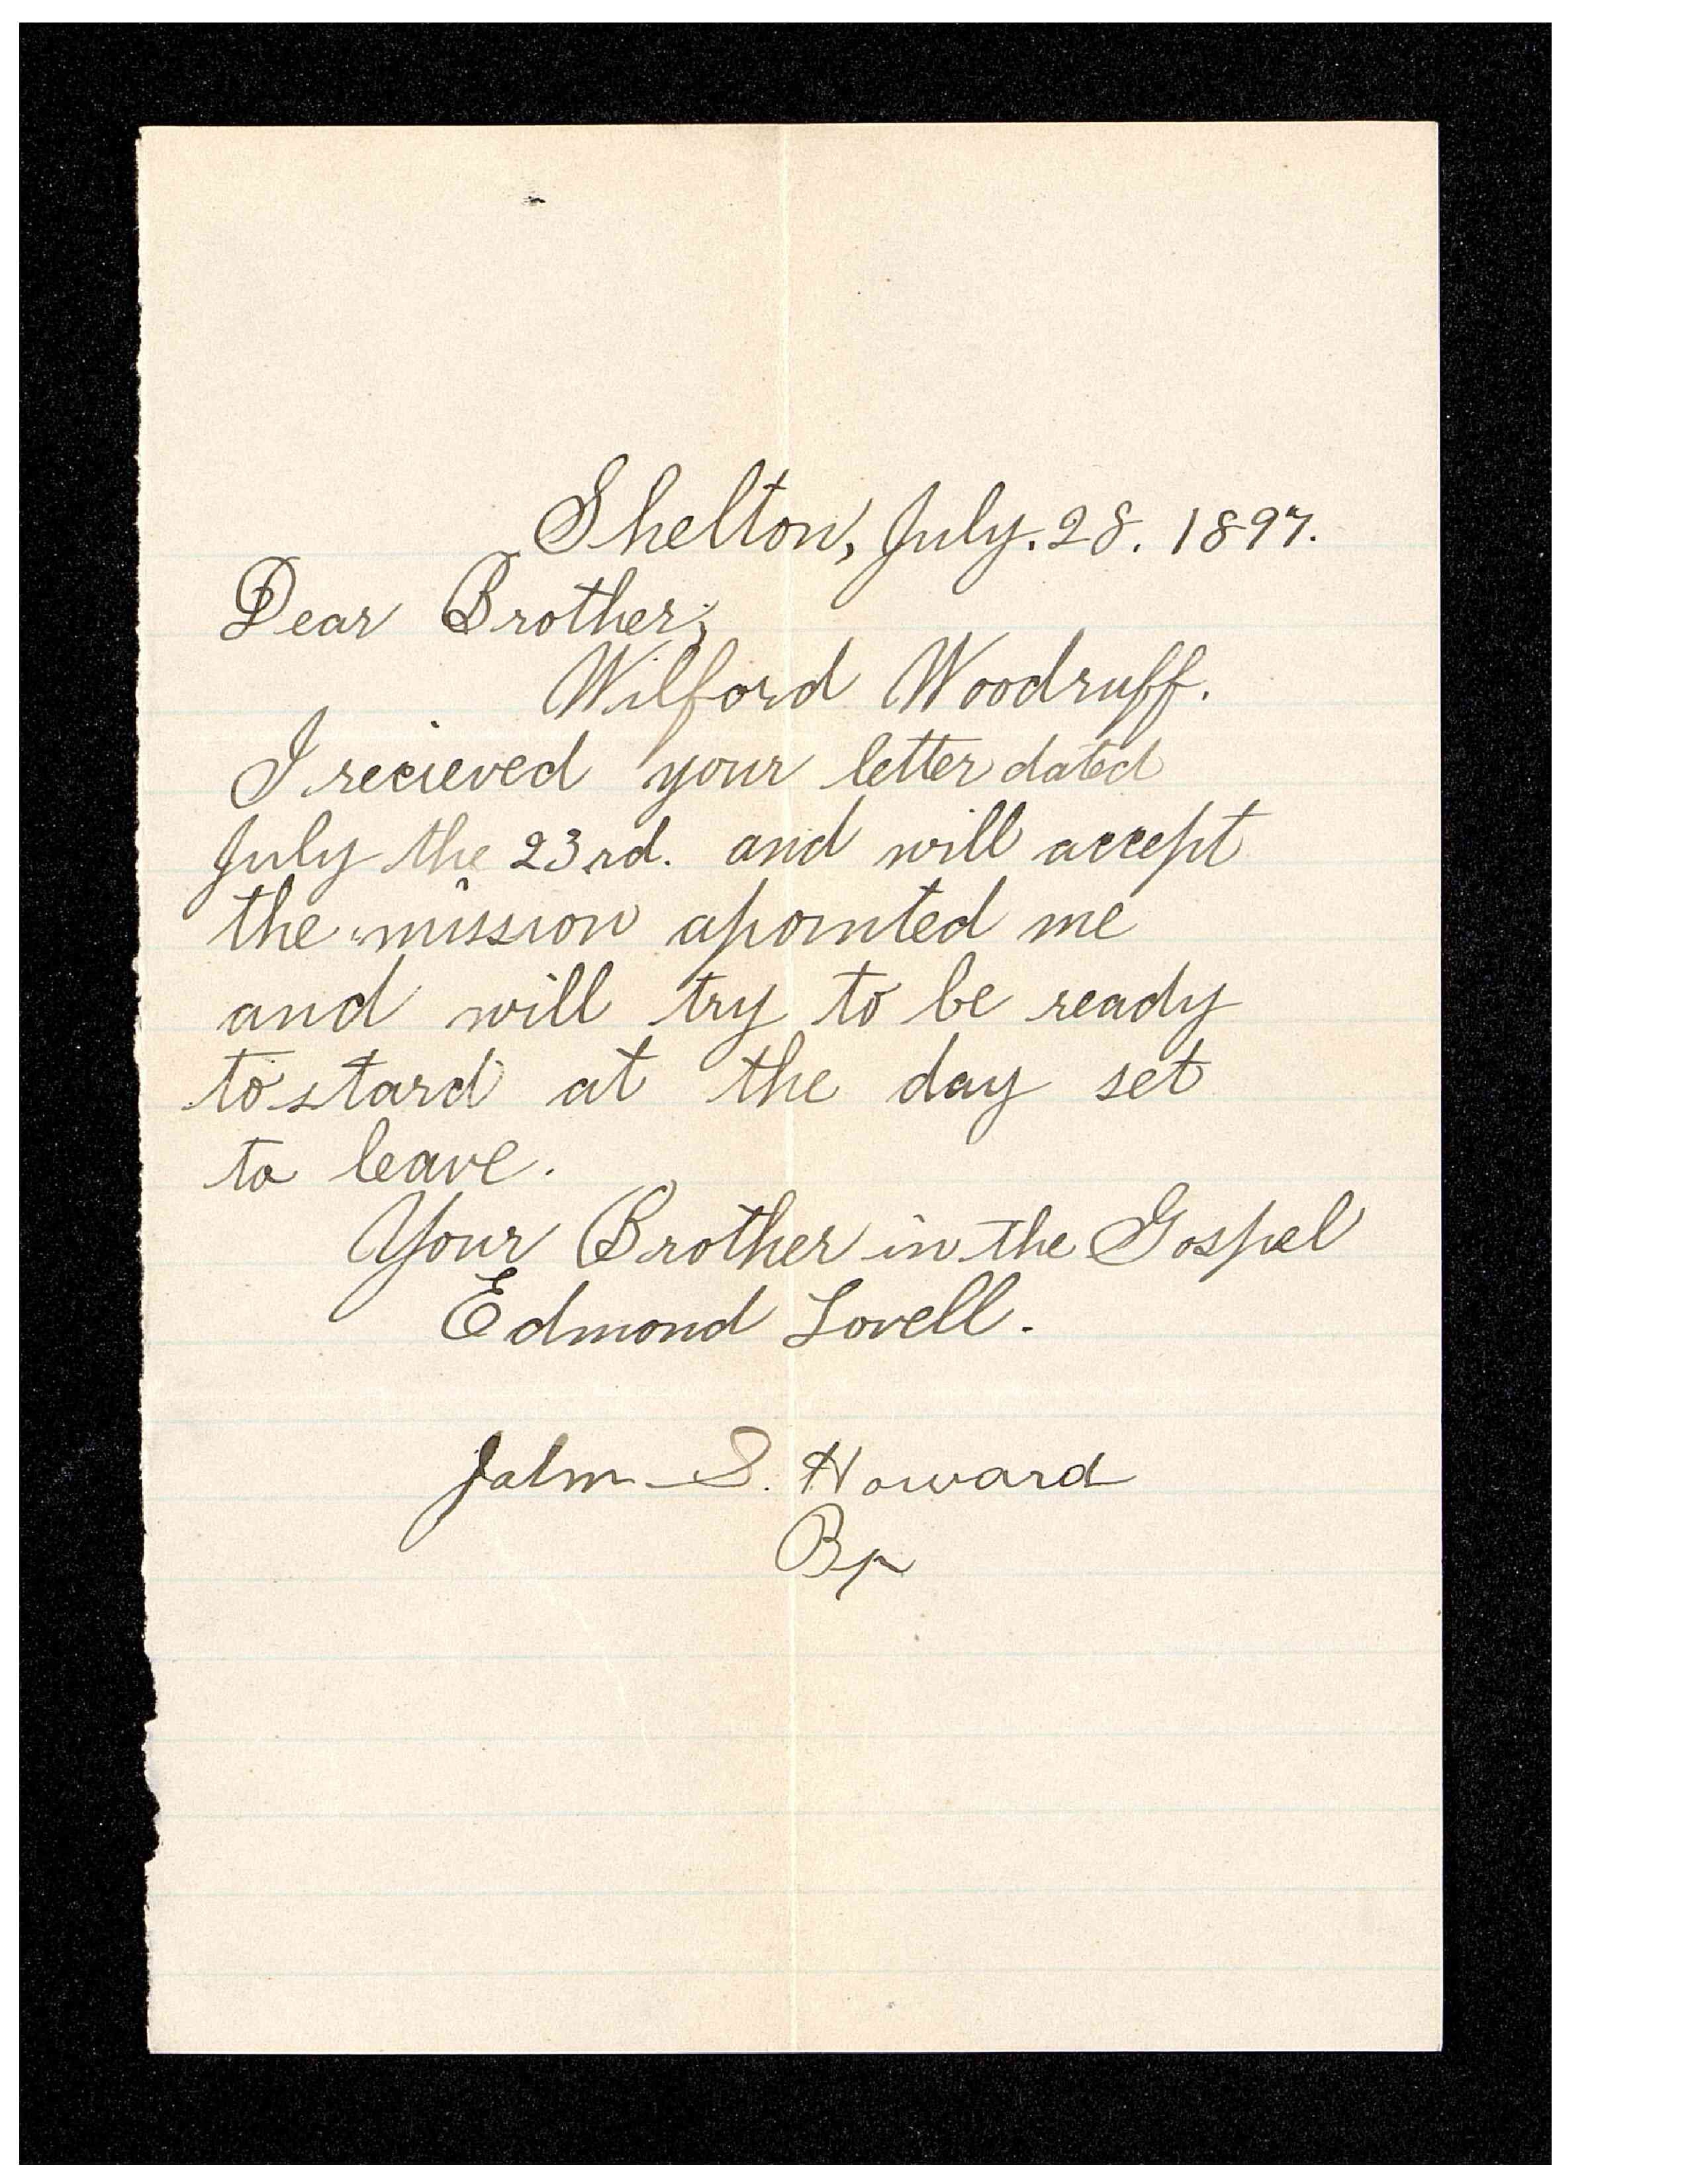 Shelton, July. 28. 1897.
Dear Brother;
Wilford Woodruff.
I recieved your letter dated
July the 23rd. and will accept
the mission apointed me
and will try to be ready
to stard at the day set
to leave.
Your Brother in the Gospel
Edmond Lovell.
John S. Howard
Bp